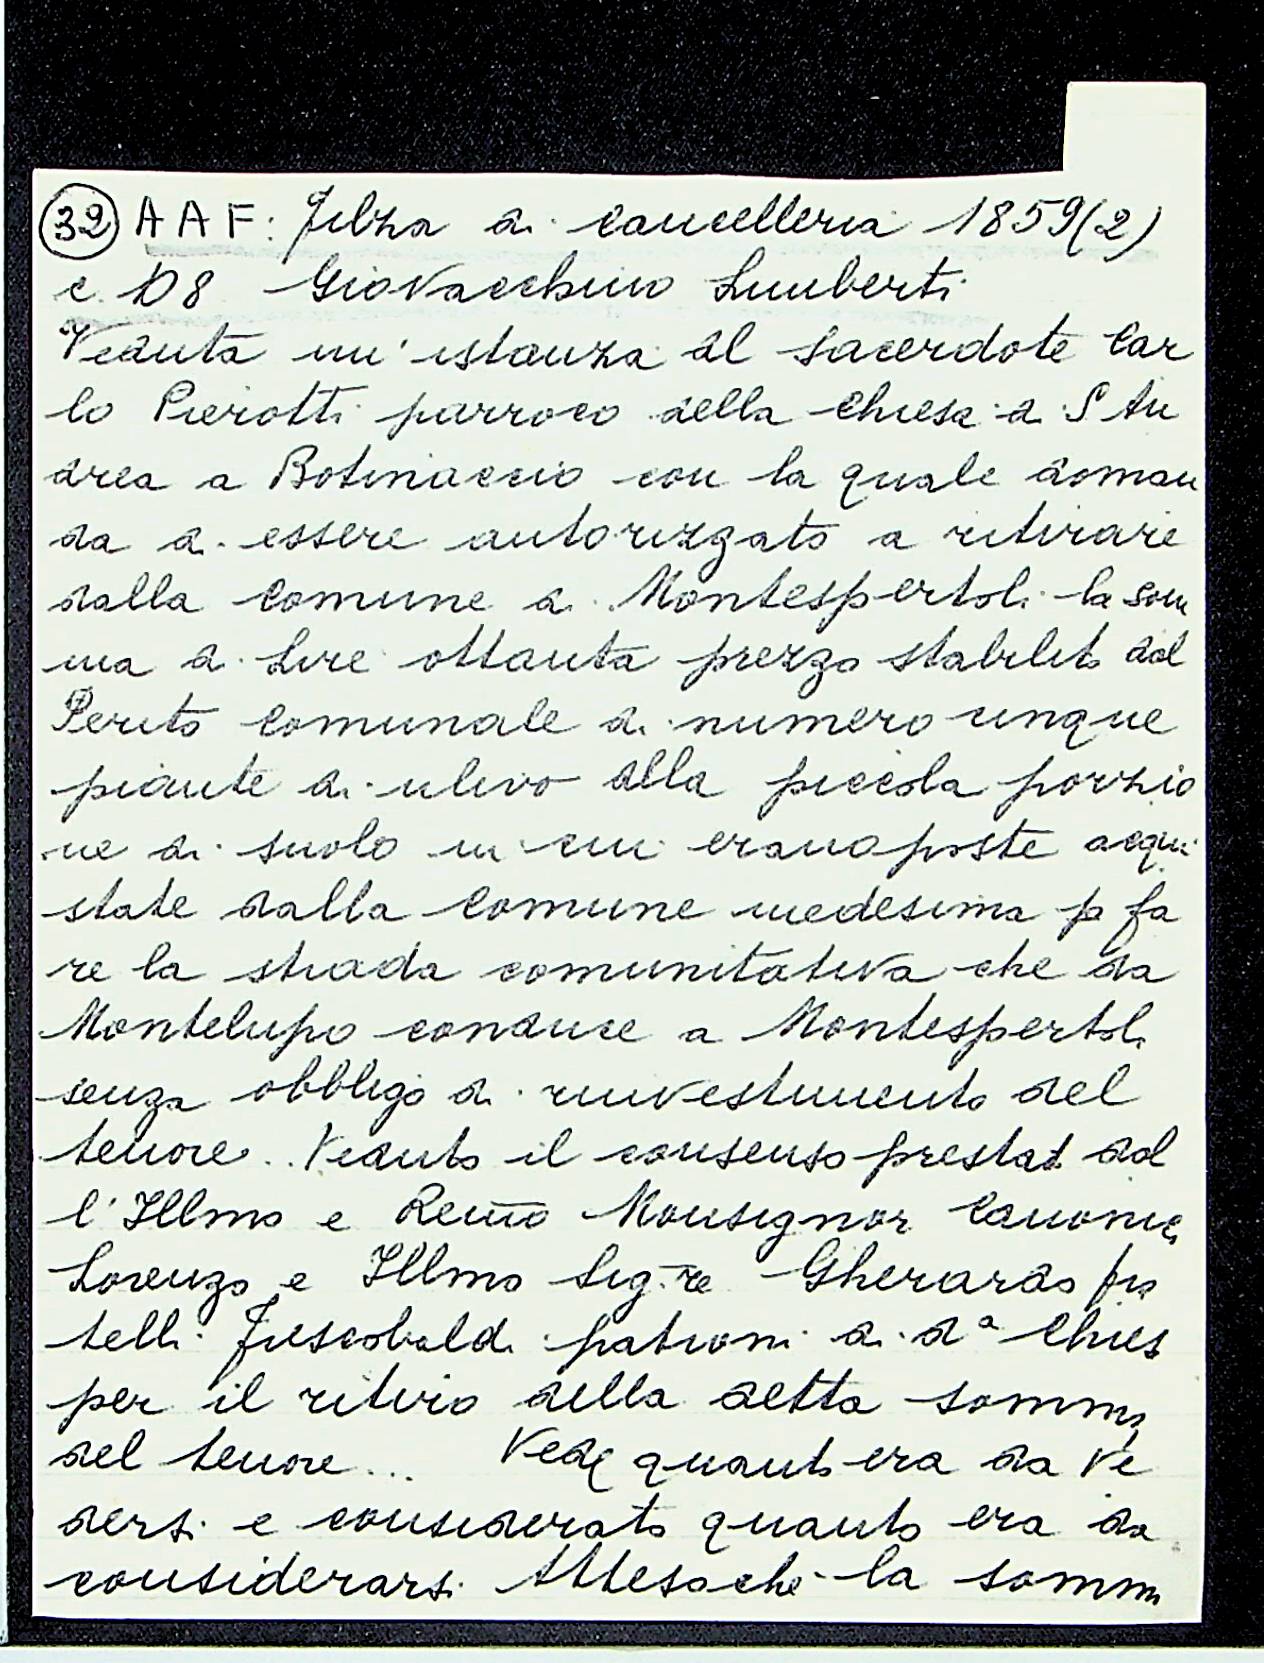 32 AAF: Filza di Cancelleria 1859(2)
c. 108 Giovacchino Limberti
Veduta un'istanza del sacerdote Car
lo Pierotti parroco della Chiesa di S An
drea a Botinaccio con la quale doman
da di essere autorizzato a ritirare
dalla Comune di Montespertoli la som
ma di Lire ottanta prezzo stabilito dal
Perito Comunale di numero cinque
piante di ulivo della piccola porzio
ne di suolo in cui erano poste acqui
state dalla Comune medesima p fa
re la strada comunitativa che da
Montelupo conduce a Montespertoli
senza obbligo di rinvestimento del
tenore.. Veduto il consenso prestat dal
l'Illmo e Remo Monsignor Canonic
Lorenzo e Illmo Sig.re Gherardo fra
telli Frescobaldi patroni di da Chies
per il ritiro della detta somma
del tenore... Ved quanto era da ve
dersi e considerato quanto era da
considerarsi. Attesoche la somm